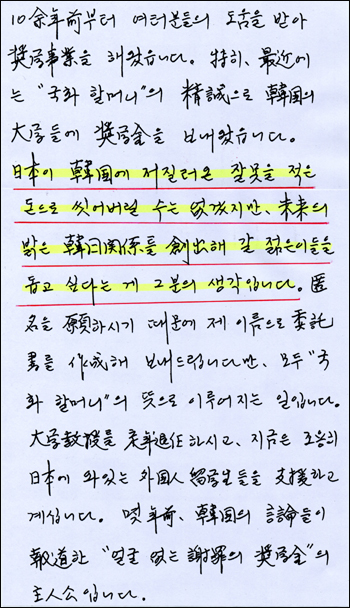 10余年前부터 여러분들의 도움을 받아
奬学事業을 해왔습니다. 特히, 最近에
는 "국화 할머니"의 精誠으로 韓国의
大学들에 奬学金을 보내왔습니다.
日本이 韓国에 저질러온 잘못을 적은
돈으로 씻어버릴 수는 없겠지만, 未来의
밝은 韓日関係를 創出해 갈 젊은이들을
돕고 싶다는 게 그분의 생각입니다. 匿
名을 願하시기 때문에 제 이름으로 委託
書를 作成해 보내드립니다만, 모두 "국
화 할머니"의 뜻으로 이루어지는 일입니다.
大学教授를 定年退任하시고, 지금은 조용히
日本에 와있는 外国人 留学生들을 支援하고
계십니다. 몇年前, 韓国의 言論들이
報道한 "얼굴 없는 謝罪의 奬学金"의
主人公입니다.